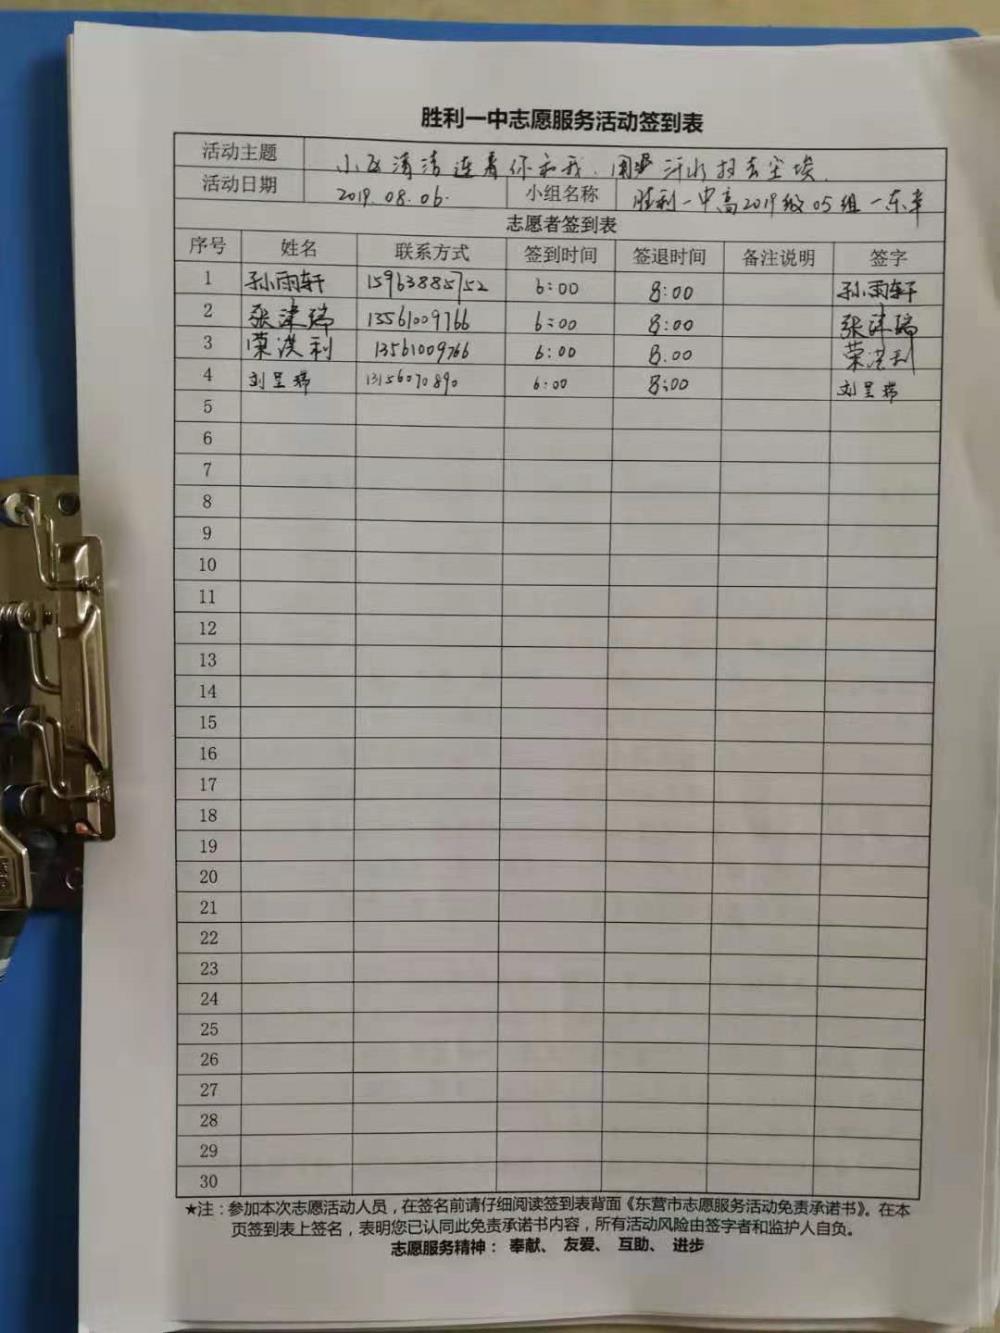 胜利一中志愿服务活动签到表
活动主题 小区清洁连着你和我.用 汗水扫去尘埃.
活动日期 2019.08.06. 小组名称 胜利一中高2019级05组-东辛
志愿者签到表
序号 姓名 联系方式 签到时间 签退时间 备注说明 签字
1 孙雨轩 15963885752 6:00 8:00 孙雨轩
2 张津瑞 13561009766 6:00 8:00 张津瑞
3 荣洪利 13561009766 6:00 8.00 荣洪利
4 刘呈瑞 13156070890 6:00 8:00 刘呈瑞
5
6
7
8
9
10
11
12
13
14
15
16
17
18
19
20
21
22
23
24
25
26
27
28
29
30
★注：参加本次志愿活动人员，在签名前请仔细阅读签到表背面《东营市志愿服务活动免责承诺书》。在本
页签到表上签名，表明您已认同此免责承诺书内容，所有活动风险由签字者和监护人自负。
志愿服务精神： 奉献、 友爱、 互助、 进步